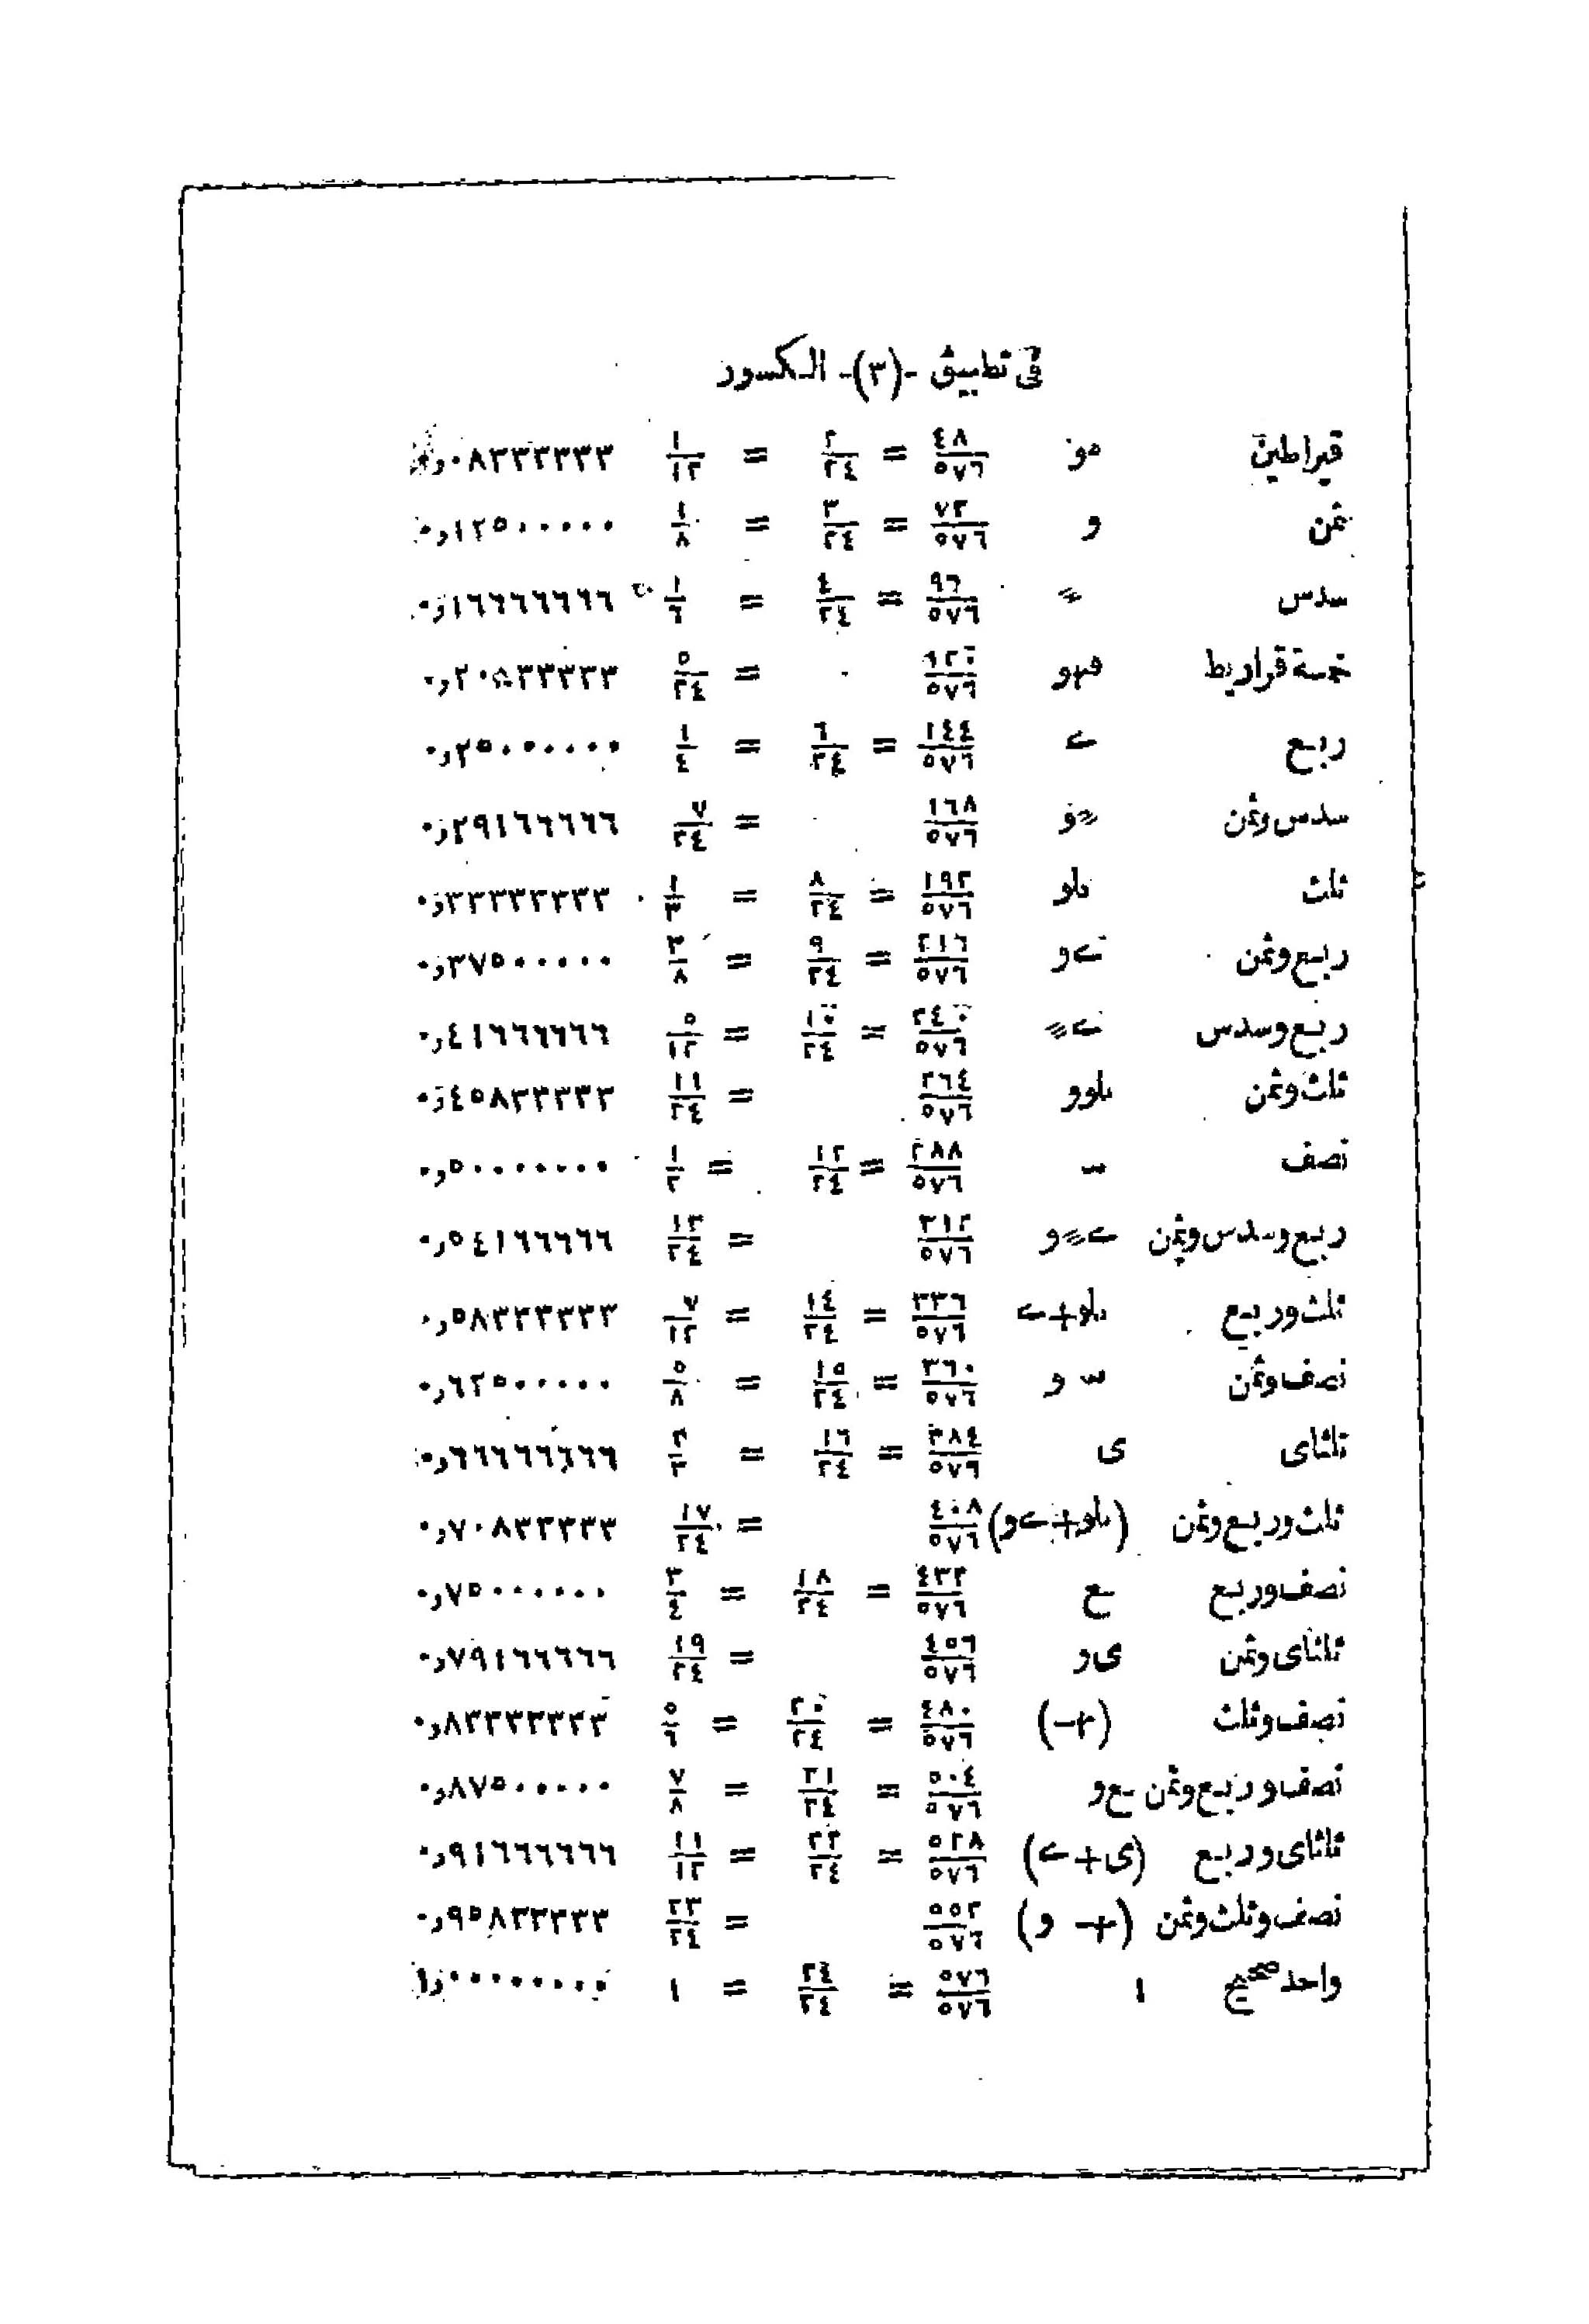 في تطبيق -(٣)- الكسور
قيراطين ٤٨/٥٧٦ = ٢/٢٤ = ١/١٢ ٠٫٠٨٣٣٣٣٣٣
ثمن و ٧٢/٥٧٦ = ٣/٢٤ = ١/٨ ٠٫١٢٥٠٠٠٠٠
سدس ٩٦/٥٧٦ = ٤/٢٤ = ١/٦ ٠٫١٦٦٦٦٦٦٦
خمسة قراريط ١٢٠/٥٧٦ = ٥/٢٤ ٠٫٢٠٨٣٣٣٣٣
ربع ١٤٤/٥٧٦ = ٦/٢٤ = ١/٤ ٠٫٢٥٠٠٠٠٠٠
سدس وثمن ١٦٨/٥٧٦ = ٧/٢٤ ٠٫٢٩١٦٦٦٦٦
ثلث ١٩٢/٥٧٦ = ٨/٢٤ = ١/٣ ٠٫٣٣٣٣٣٣٣٣
ربع وثمن ٢١٦/٥٧٦ = ٩/٢٤ = ٣/٨ ٠٫٣٧٥٠٠٠٠٠
ربع وسدس ٢٤٠/٥٧٦ = ١٠/٢٤ = ٥/١٢ ٠٫٤١٦٦٦٦٦٦
ثلث وثمن ٢٦٤/٥٧٦ = ١١/٢٤ ٠٫٤٥٨٣٣٣٣٣
نصف ٢٨٨/٥٧٦ = ١٢/٢٤ = ١/٢ ٠٫٥٠٠٠٠٠٠٠
ربع وسدس وثمن ٣١٢/٥٧٦ = ١٣/٢٤ ٠٫٥٤١٦٦٦٦٦
ثلث وربع ٣٣٦/٥٧٦ = ١٤/٢٤ = ٧/١٢ ٠٫٥٨٣٣٣٣٣٣
نصف وثمن ٣٦٠/٥٧٦ = ١٥/٢٤ = ٥/٨ ٠٫٦٢٥٠٠٠٠٠
ثلثاى ى ٣٨٤/٥٧٦ = ١٦/٢٤ = ٢/٣ ٠٫٦٦٦٦٦٦٦٦
ثلث وربع وثمن ٤٠٨/٥٧٦ = ١٧/٢٤ ٠٫٧٠٨٣٣٣٣٣
نصف وربع ع ٤٣٢/٥٧٦ = ١٨/٢٤ = ٣/٤ ٠٫٧٥٠٠٠٠٠٠
ثلثاى وثمن ى و ٤٥٦/٥٧٦ = ١٩/٢٤ ٠٫٧٩١٦٦٦٦٦
نصف وثلث ٤٨٠/٥٧٦ = ٢٠/٢٤ = ٥/٦ ٠٫٨٣٣٣٣٣٣٣
نصف وربع وثمن ع و ٥٠٤/٥٧٦ = ٢١/٢٤ = ٧/٨ ٠٫٨٧٥٠٠٠٠٠
ثلثاى وربع ٥٢٨/٥٧٦ = ٢٢/٢٤ = ١١/١٢ ٠٫٩١٦٦٦٦٦٦
نصف وثلث وثمن ٥٥٢/٥٧٦ = ٢٣/٢٤ ٠٫٩٥٨٣٣٣٣٣
واحد صحيح ١ ٥٧٦/٥٧٦ = ٢٤/٢٤ = ١ ١٫٠٠٠٠٠٠٠٠